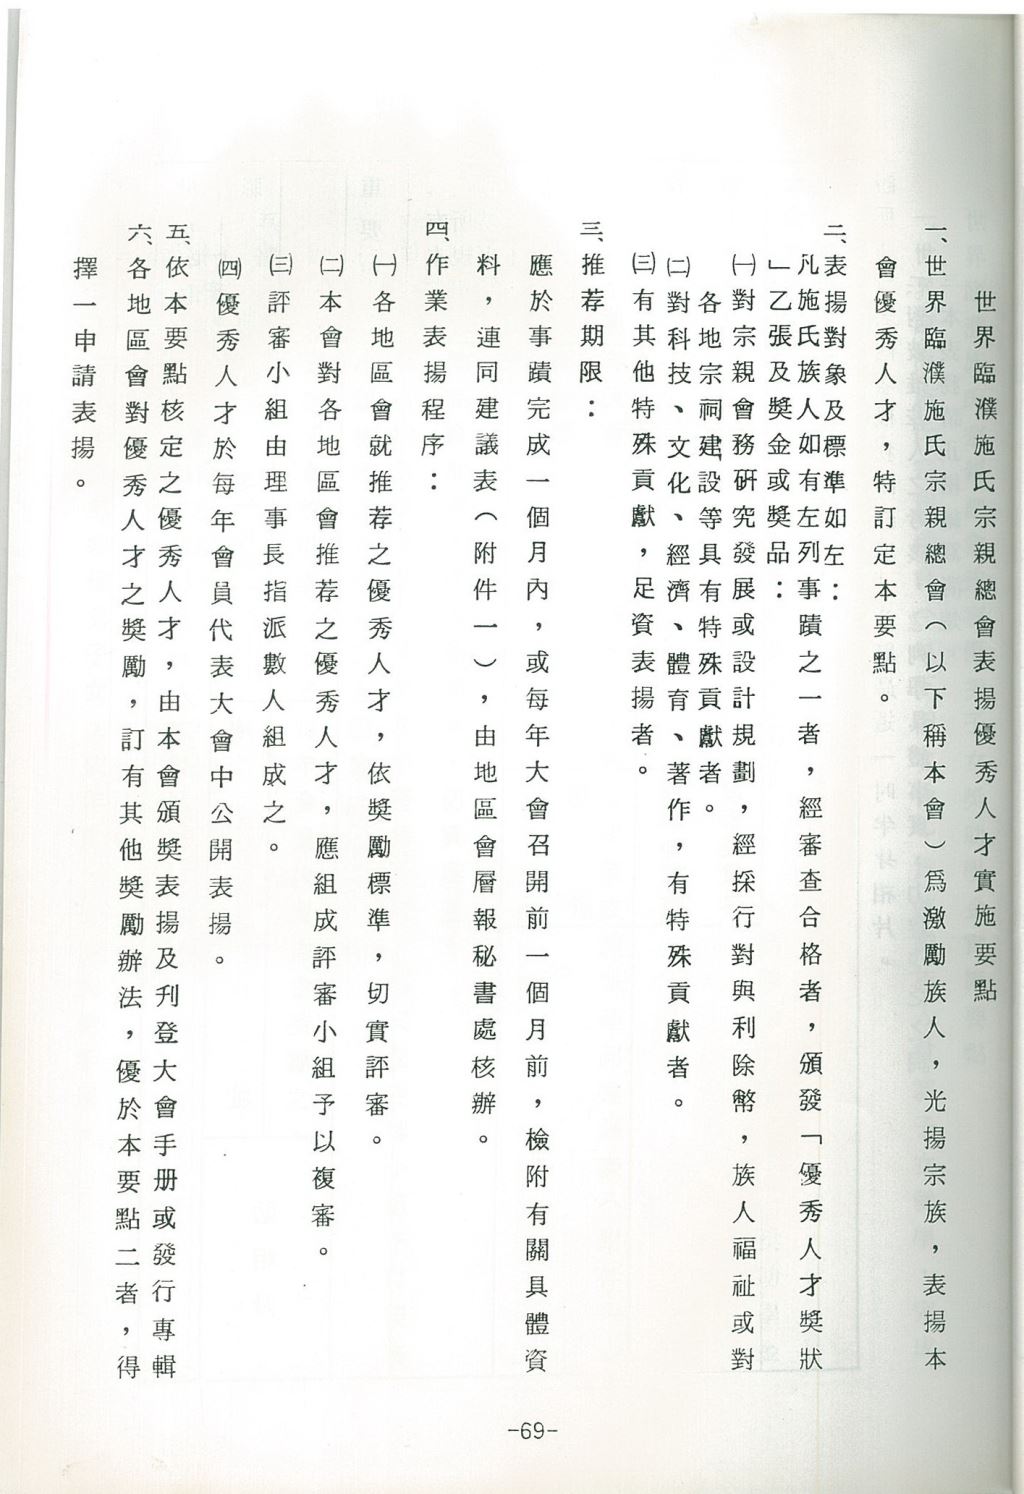 世界臨濮施氏宗親總會表揚優秀人才實施要點
一、世界臨濮施氏宗親總會（以下稱本會）爲激勵族人，光揚宗族，表揚本
會優秀人才，特訂定本要點。
二、表揚對象及標準如左：
凡施氏族人如有左列事蹟之一者，經審查合格者，頒發「優秀人才獎狀
」乙張及獎金或獎品：
㈠對宗親會務研究發展或設計規劃，經採行對與利除幣，族人福祉或對
各地宗祠建設等具有特殊貢獻者。
㈡對科技、文化、經濟、體育、著作，有特殊貢獻者。
㈢有其他特殊貢獻，足資表揚者。
三、推荐期限：
應於事蹟完成一個月內，或每年大會召開前一個月前，檢附有關具體資
料，連同建議表（附件一），由地區會層報秘書處核辦。
四、作業表揚程序：
㈠各地區會就推荐之優秀人才，依獎勵標準，切實評審。
㈡本會對各地區會推荐之優秀人才，應組成評審小組予以複審。
㈢評審小組由理事長指派數人組成之。
㈣優秀人才於每年會員代表大會中公開表揚。
五、依本要點核定之優秀人才，由本會頒獎表揚及刋登大會手册或發行專輯
六、各地區會對優秀人才之獎勵，訂有其他獎勵辦法，優於本要點二者，得
擇一申請表揚。
-69-